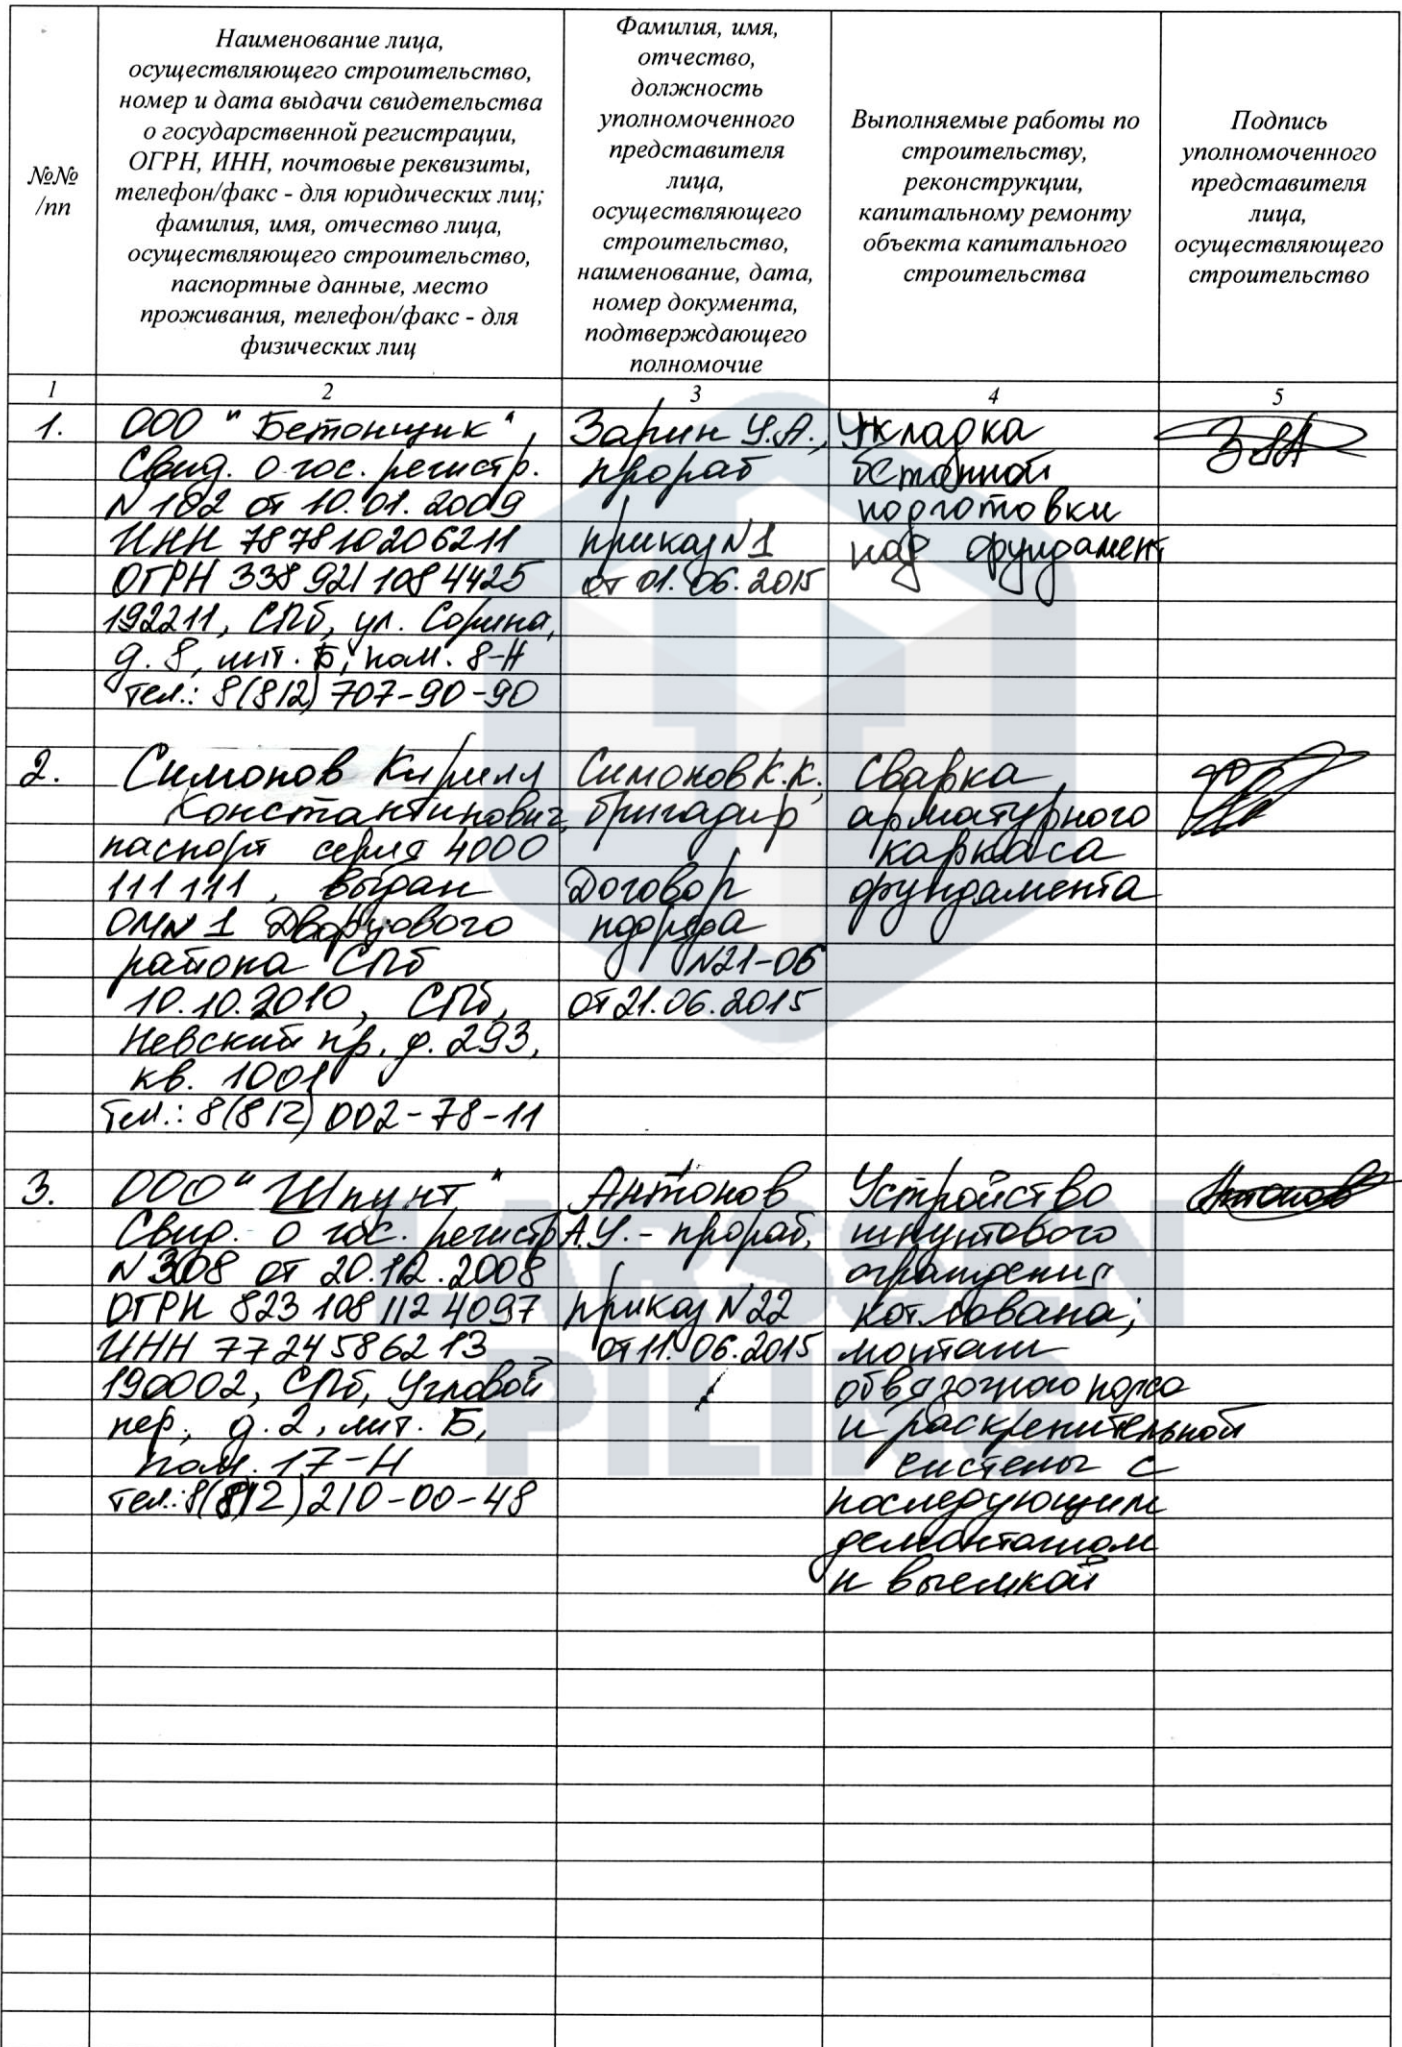 №№
/пп
Наименование лица,
осуществляющего строительство,
номер и дата выдачи свидетельства
о государственной регистрации,
ОГРН, ИНН, почтовые реквизиты,
телефон/факс - для юридических лиц;
фамилия, имя, отчество лица,
осуществляющего строительство,
паспортные данные, место
проживания, телефон/факс - для
физических лиц
Фамилия, имя,
отчество,
должность
уполномоченного
представителя
лица,
осуществляющего
строительство,
наименование, дата,
номер документа,
подтверждающего
полномочие
Выполняемые работы по
строительству,
реконструкции,
капитальному ремонту
объекта капитального
строительства
Подпись
уполномоченного
представителя
лица,
осуществляющего
строительство
1
2
3
4
5
1.
ООО "Бетонщик",
Свид. о гос. регистр.
N 182 от 10.01.2009
ИНН 787810206211
ОГРН 338 921 108 4425
192211, СПб, ул. Сорина,
д. 8, лит. Б, пом. 8-Н
Тел.: 8(812) 707-90-90
Зарин У.А.,
прораб
приказ N1
от 01.06.2015
Укладка
бетонной
подготовки
над фундамент
ЗУА
2.
Симонов Кирилл
Константинович,
паспорт серия 4000
111111, выдан
ОМN 1 Дворцового
района СПб
10.10.2010, СПб,
Невский пр. д. 293,
кв. 1001
Тел.: 8(812) 002-78-11
Симонов К.К.,
бригадир
Договор
подряда
N21-06
от 21.06.2015
Сварка
арматурного
каркаса
фундамента
3.
ООО "Шпунт"
Свид. о гос. регистр
N 308 от 20.12.2008
ОГРН 823 108 112 4097
ИНН 7724586213
190002, СПб, Угловой
пер., д. 2, лит. Б,
пом. 17-Н
тел.: 8(812) 210-00-48
Антонов
А.У. - прораб,
приказ N22
от 11.06.2015
Устройство
шпунтового
ограждения
котлована;
монтаж
обвязочного пояса
и раскрепительной
системы с
последующим
демонтажом
и выемкой
Антонов
LARSSEN
PILING